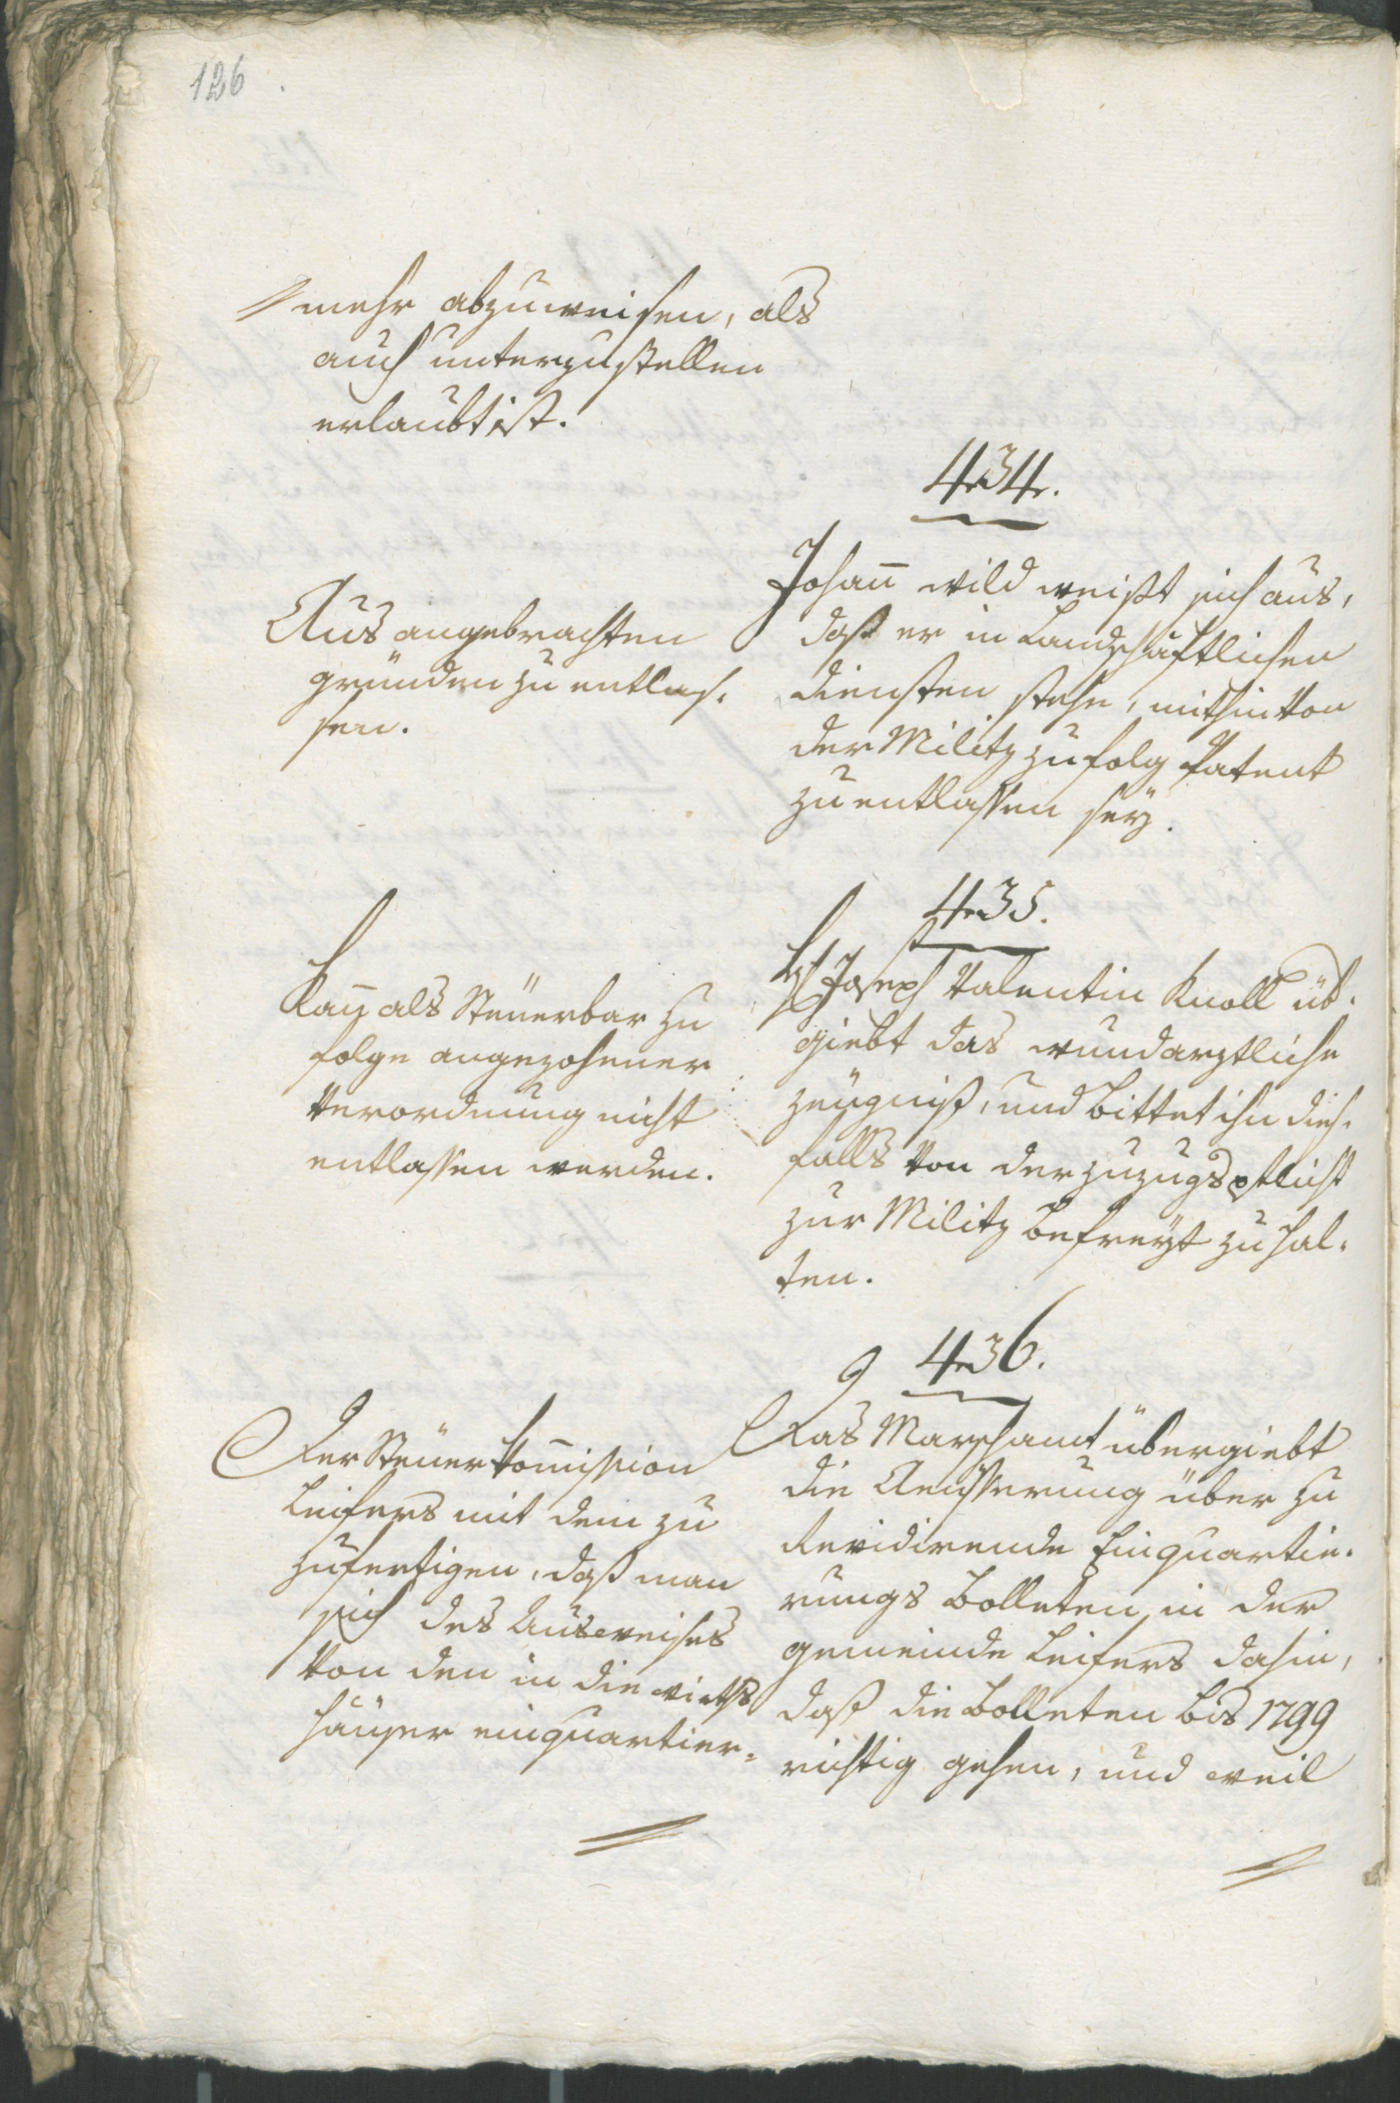 126
mehr abzuweisen, als
auch unterzustellen
erlaubt ist.
434.
Aus angebrachten
gründen zu entlas-
sen.
Johann wild weißt sich aus,
daß er in Landschäftlichen
diensten stehe, mithin von
der Militz zufolg Patent
zu entlassen seÿ.
435.
Kann als Steüerbar zu
folge angezohener
Verordnung nicht
entlassen werden.
Joseph Valentin Knoll üb-
giebt das wundarztliche
zeügniß, und bittet ihn dies-
falls von der zuzugspflicht
zur Militz befreyt zu hal-
ten.
436.
Der Steüer Kommission
Leifers mit dem zu
zufertigen, daß man
sich des Ausweises
von den in die wirths
häüser einquartier-
Das Marschamt übergiebt
die Aeüsserung über zu
Revidirende Einquartie-
rungs Bolleten in der
gemeinde Leifers dahin,
daß die Bolleten bis 1799
richtig gehen, und weil